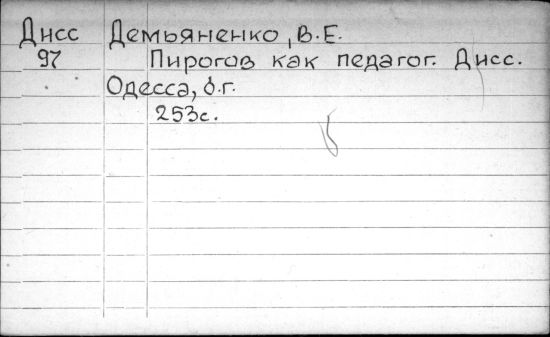 Дисс Демьяненко, В.Е.
97 Пирогов как педагог. Дисс.
Одесса, б.г.
253с.